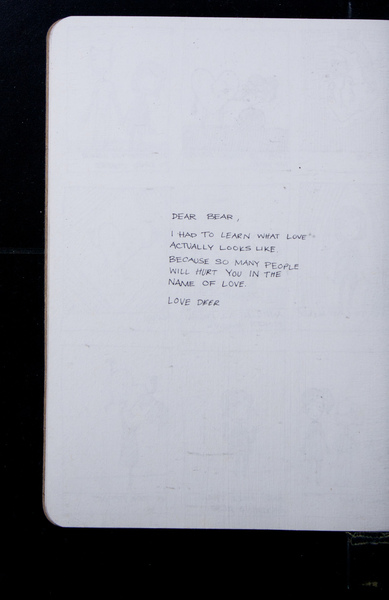 DEAR BEAR,
I HAD TO LEARN WHAT LOVE
ACTUALLY LOOKS LIKE
BECAUSE SO MANY PEOPLE
WILL HURT YOU IN THE
NAME OF LOVE.
LOVE DEER